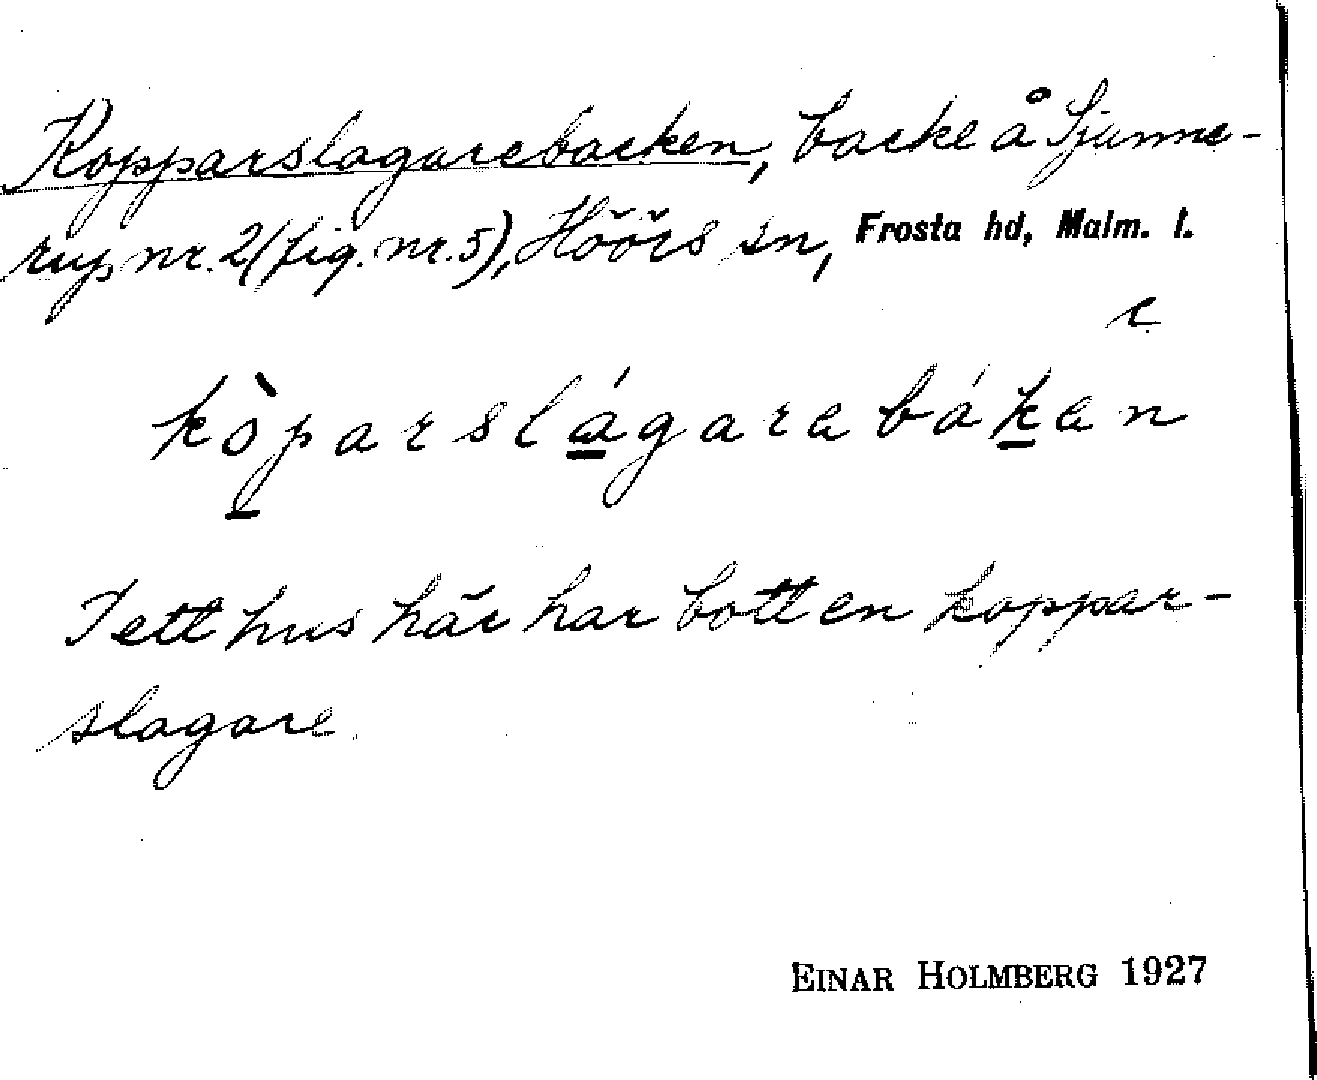 Kopparslagarebacken, backe å Sjunne-
rup nr. 2 (fig. nr. 5), Höörs sn, Frosta hd, Malm. l.
e
kòparslágarabákan
I ett hus här har bott en koppar-
slagare.
EINAR HOLMBERG 1927